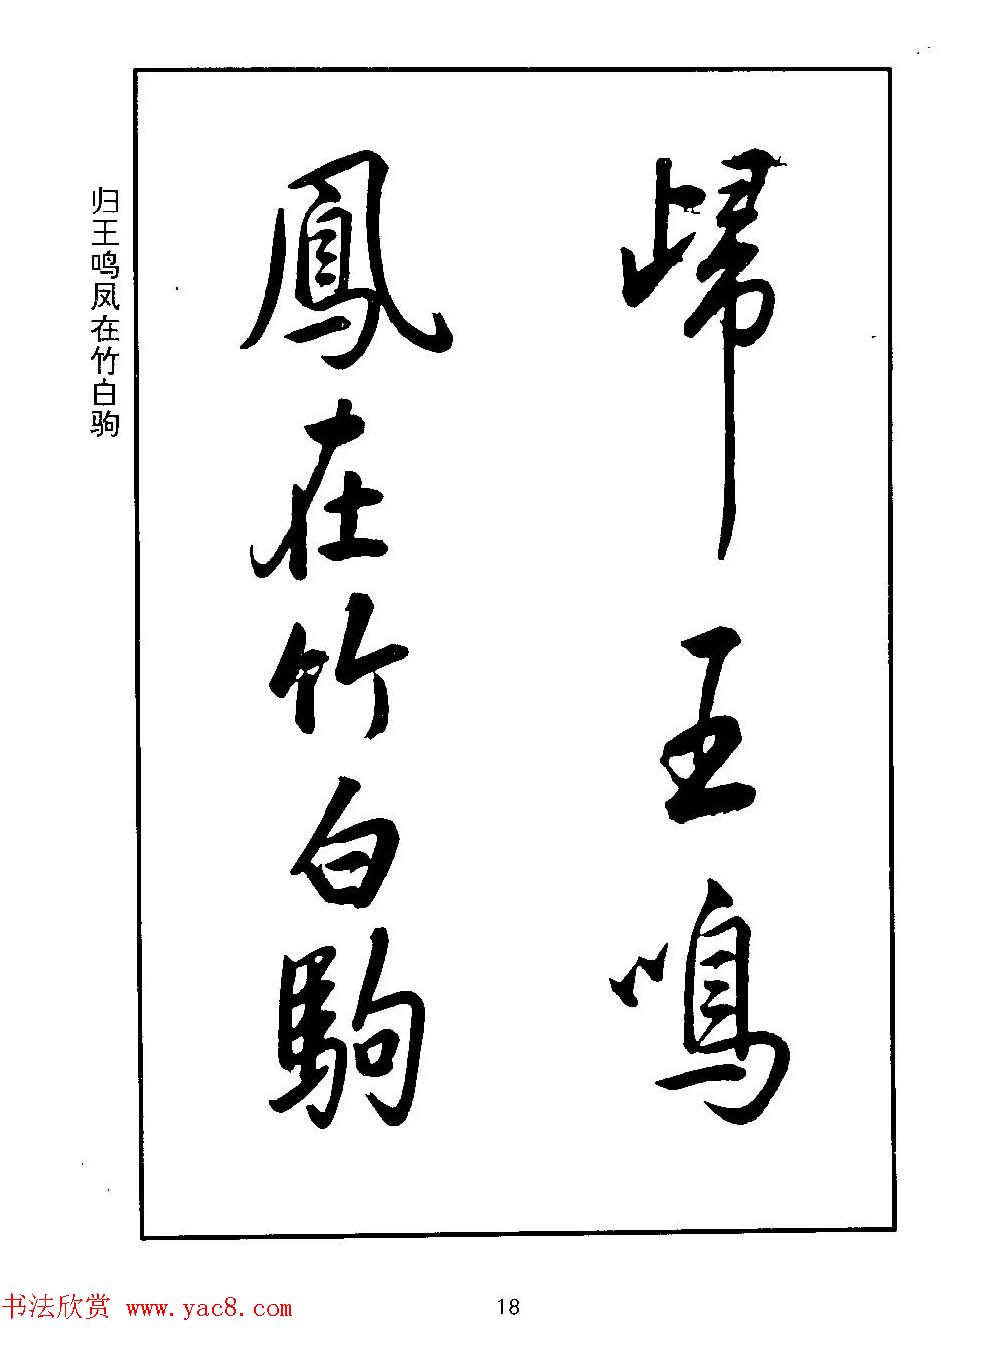 歸王鳴
鳳在竹白駒
归王鸣凤在竹白驹
书法欣赏 www.yac8.com
18